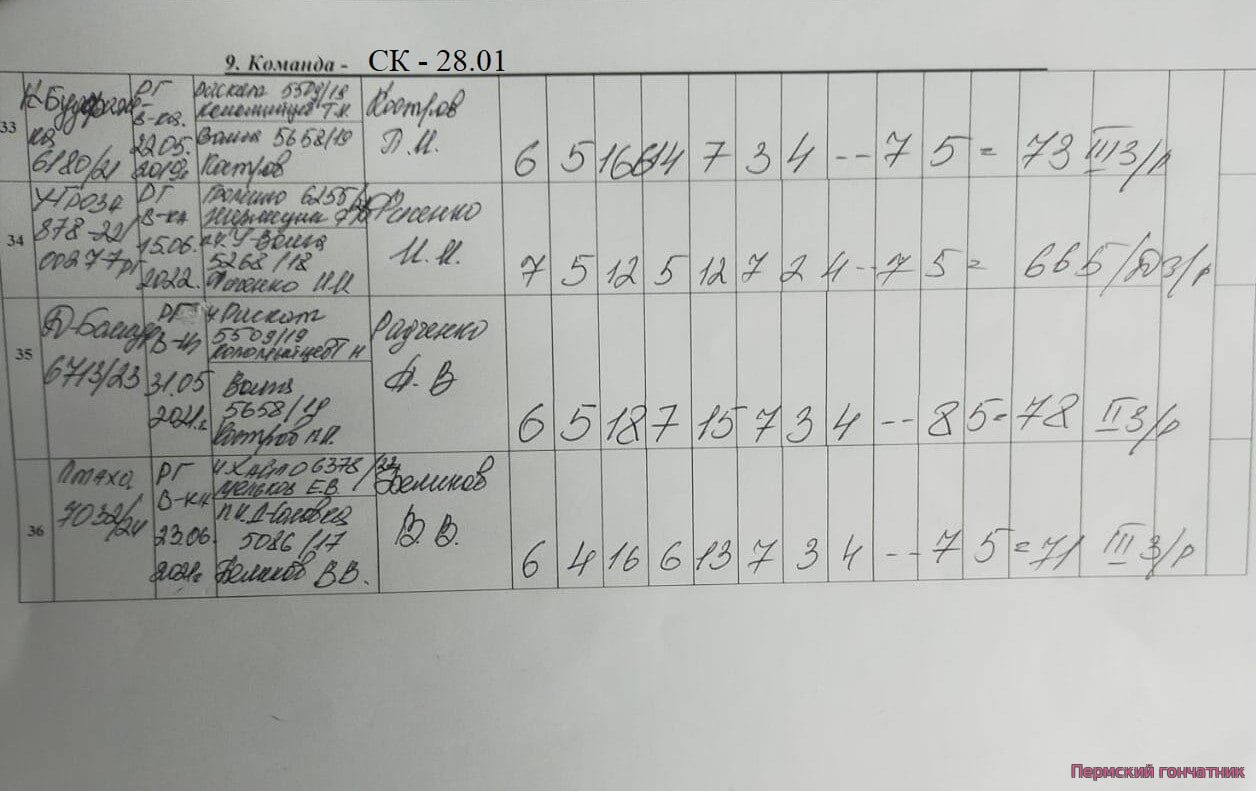 9. Команда - СК - 28.01
33
6180/21
РГ
В-ка.
22.05.
2019г
5509/19
Т.Н.
Волга 5658/19
Костров
Костров
П.М.
6 5 16 6 14 7 3 4 -- 7 5 = 73 III З/р
34
У-Гроза
878-22/
00277рг
РГ
В-ка
15.06.
2022.
6255/
Волга
5268/18
И.И.
И.И.
7 5 12 5 12 7 2 4 -- 7 5 = 66 Б/Д З/р
35
6713/23
РГ
31.05
2021г.
ч Раскат
5509/19
Волга
5658/19
Костров П.М.
Радченко
В
6 5 18 7 15 7 3 4 -- 8 5 = 78 II З/р
36
Птаха
7032/24
РГ
В-ка
23.06.
2021г
6378/22
Мельков Е.В.
5086/17
Беликов В.В.
Беликов
В.В.
6 4 16 6 13 7 3 4 -- 7 5 = 71 III З/р
Пермский гончатник